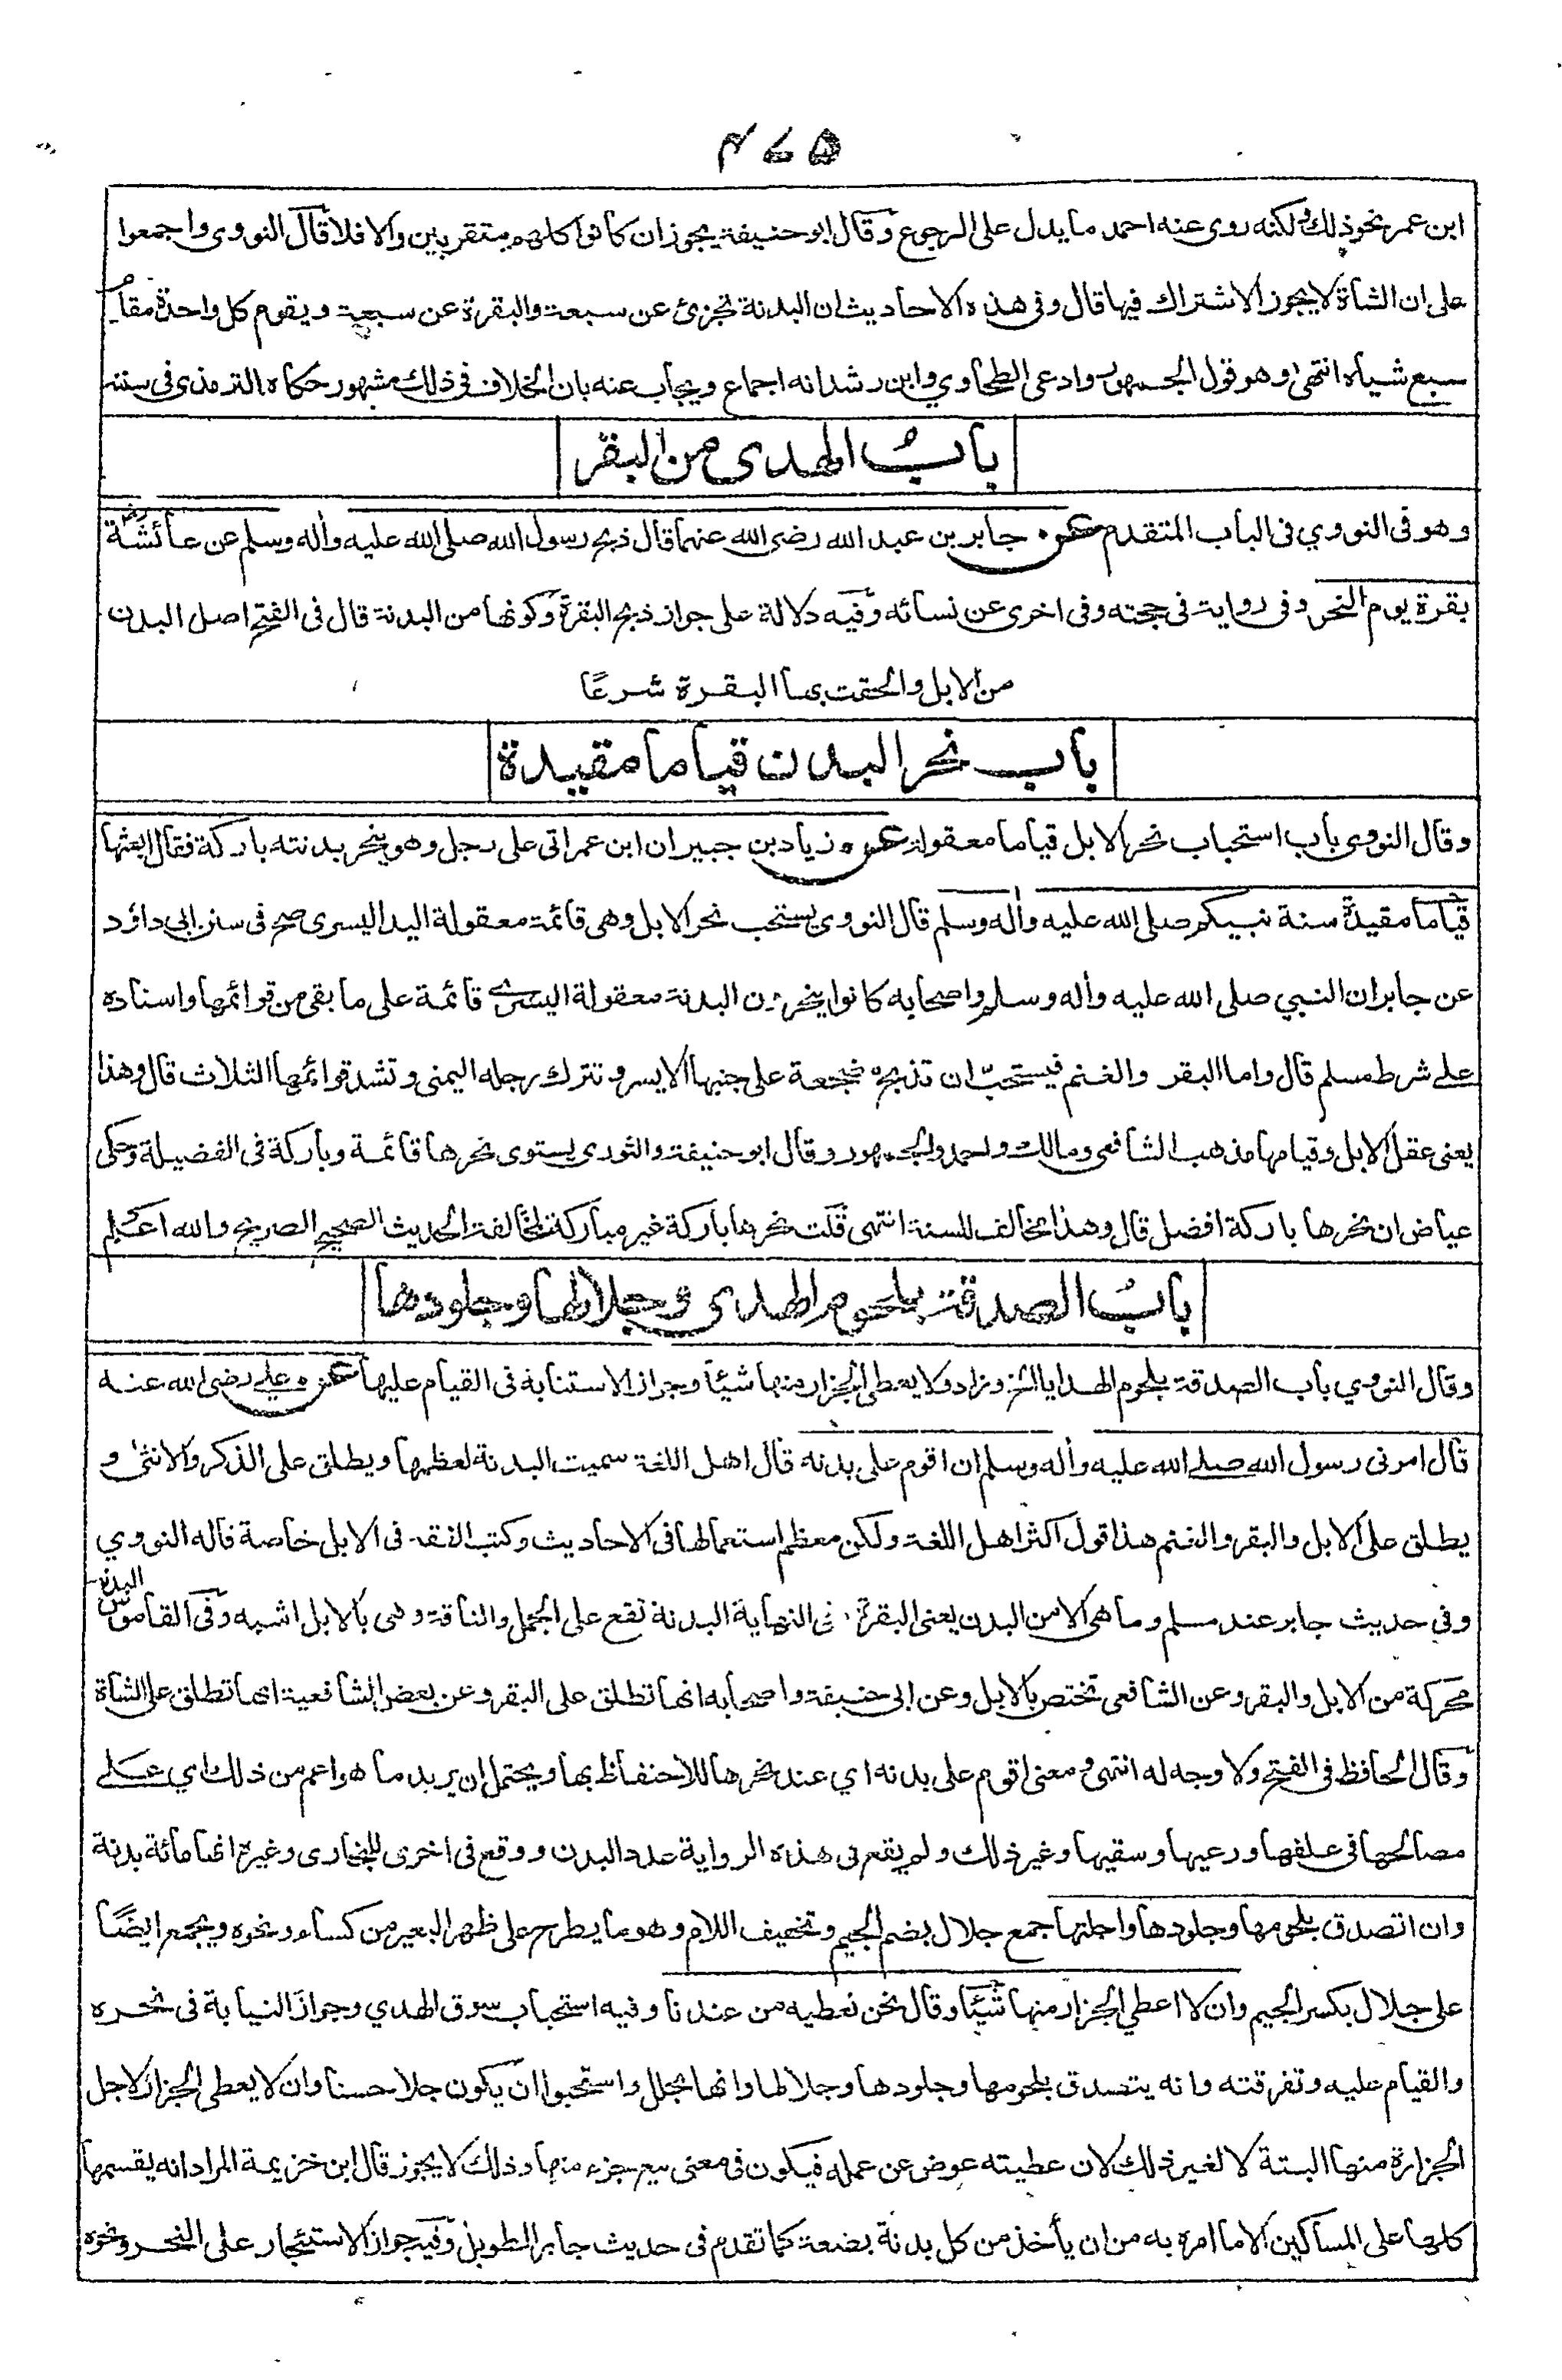 ۴۷۵
ابن عمر نحو ذلك ولكنه روى عنه احمد ما يدل على الرجوع وقال ابو حنيفة يجوز ان كانوا كلهم متقربين والا فلا قال النووى واجمعوا
على ان الشاة لا يجوز الاشتراك فيها قال وفى هذه الاحاديث ان البدنة تجزئ عن سبعة والبقرة عن سبعة ويقوم كل واحدة مقام
سبع شياه انتهى وهو قول الجمهور وادعى الطحاوي وابن رشد انه اجماع ويجاب عنه بان الخلاف فى ذلك مشهور حكاه الترمذى فى سننه
بابُ الهدى من البقر
وهو فى النووي فى الباب المتقدم عن جابر بن عبد الله رضى الله عنهما قال ذبح رسول الله صلى الله عليه وأله وسلم عن عائشة رض
بقرة يوم النحر وفى رواية فى حجته وفى اخرى عن نسائه وفيه دلالة على جواز ذبح البقرة وكونها من البدنة قال فى الفتح اصل البدن
من الابل والحقت بها البقرة شرعًا
باب نحر البدن قياما مقيدة
وقال النووى باب استحباب نحر الابل قياما معقولة عن زياد بن جبير ان ابن عمر اتى على رجل وهو ينحر بدنته باركة فقال ابعثها
قياما مقيدة سنة نبيكم صلى الله عليه وأله وسلم قال النووى يستحب نحر الابل وهى قائمة معقولة اليد اليسرى صح فى سنن ابى داؤد
عن جابر ان النبي صلى الله عليه وأله وسلم واصحابه كانوا ينحرون البدنة معقولة اليسرى قائمة على ما بقى من قوائمها واسناده
على شرط مسلم قال واما البقر والغنم فيستحب ان تذبح مضجعة على جنبها الايسر وتترك رجله اليمنى وتشد قوائمها الثلاث قال وهذا
يعنى عقل الابل وقيامها مذهب الشافعى ومالك واحمد والجمهور وقال ابو حنيفة والثورى يستوى نحرها قائمة وباركة فى الفضيلة وحكى
عياض ان نحرها باركة افضل قال وهذا مخالف للسنة انتهى قلت نحرها باركة غير مباركة لمخالفة الحديث الصحيح الصريح والله اعلم
بابُ الصدقة بلحوم الهدى وجلالها وجلودها
وقال النووي باب الصدقة بلحوم الهدايا الخ وزاد ولا يعطى الجزار منها شيئا وجواز الاستنابة فى القيام عليها عن على رضى الله عنه
قال امرنى رسول الله صلى الله عليه وأله وسلم ان اقوم على بدنه قال اهل اللغة سميت البدنة لعظمها ويطلق على الذكر والانثى و
يطلق على الابل والبقر والغنم هذا قول اكثر اهل اللغة ولكن معظم استعمالها فى الاحاديث وكتب الفقه فى الابل خاصة قاله النووي
وفى حديث جابر عند مسلم وما هى الا من البدن يعنى البقرة فى النهاية البدنة تقع على الجمل والناقة وهى بالابل اشبه وفى القاموس البدنة
محركة من الابل والبقر وعن الشافعى تختص بالابل وعن ابى حنيفة واصحابه انها تطلق على البقر وعن بعض الشافعية انها تطلق على الشاة
وقال الحافظ فى الفتح ولا وجه له انتهى ومعنى اقوم على بدنه اي عند نحرها للاحتفاظ بها ويحتمل ان يريد ما هو اعم من ذلك اي على
مصالحها فى علفها ورعيها وسقيها وغير ذلك ولم يقع فى هذه الرواية عدد البدن ووقع فى اخرى للبخارى وغيره انها مائة بدنة
وان اتصدق بلحومها وجلودها واجلتها جمع جلال بضم الجيم وتخفيف اللام وهو ما يطرح على ظهر البعير من كساء ونحوه ويجمع ايضًا
على جلال بكسر الجيم وان لا اعطي الجزار منها شيئا وقال نحن نعطيه من عندنا وفيه استحباب سوق الهدي وجواز النيابة فى نحره
والقيام عليه وتفرقته وانه يتصدق بلحومها وجلودها وجلالها وانها تجلل واستحبوا ان يكون جلا حسنا وان لا يعطى الجزار لاجل
الجزارة منها البتة لا لغير ذلك لان عطيته عوض عن عمله فيكون فى معنى بيع جزء منها وذلك لا يجوز قال ابن خزيمة المراد انه يقسمها
كلها على المساكين الا ما امره به من ان يأخذ من كل بدنة بضعة كما تقدم فى حديث جابر الطويل وفيه جواز الاستئجار على النحر ونحوه